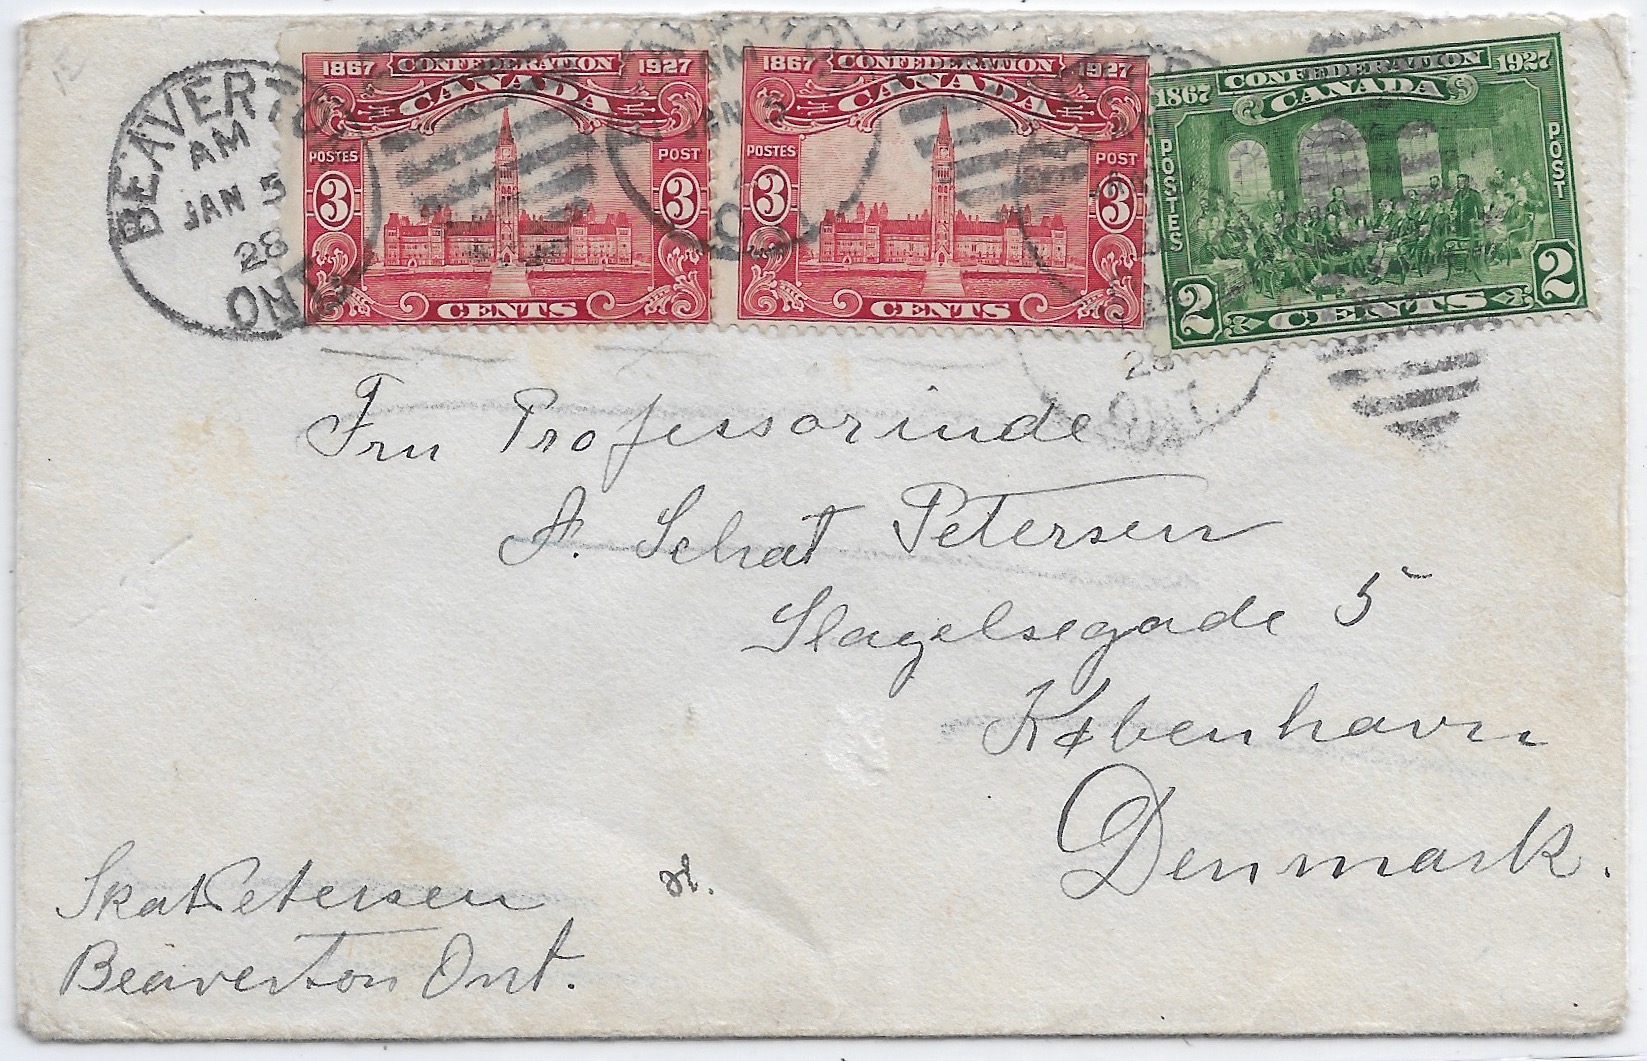 BEAVERTON
AM
JAN 5
28
ONT.
1867 CONFEDERATION 1927
CANADA
POSTES POST
3 3
CENTS
1867 CONFEDERATION 1927
CANADA
POSTES POST
3 3
CENTS
1867 CONFEDERATION 1927
CANADA
POSTES POST
2 2
CENTS
JAN 5
28
ONT.
Fru Professorinde
A. Schat Petersen
Slagelsegade 5
København
Denmark.
Skat Petersen
Beaverton Ont.